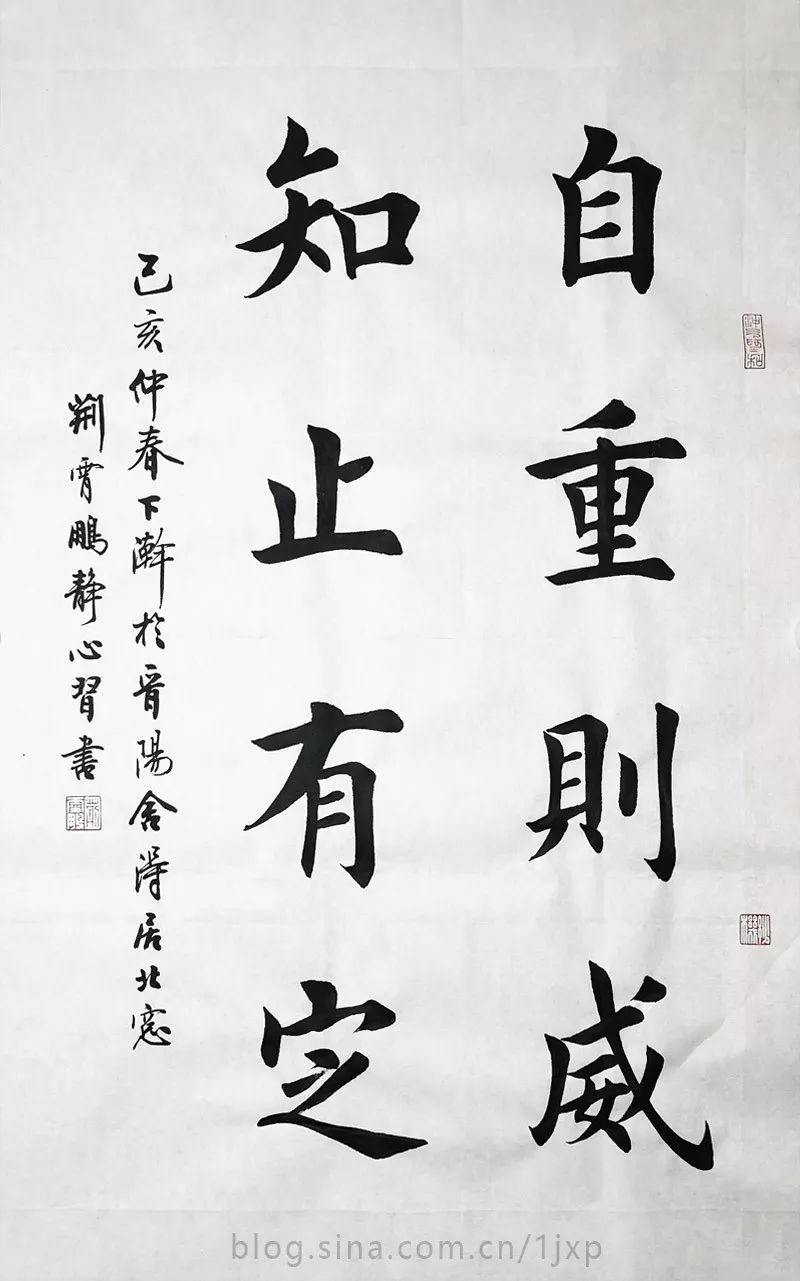 自重則威
知止有定
己亥仲春下澣於晉陽舍得居北窓
荆霄鵬静心習書
blog.sina.com.cn/1jxp